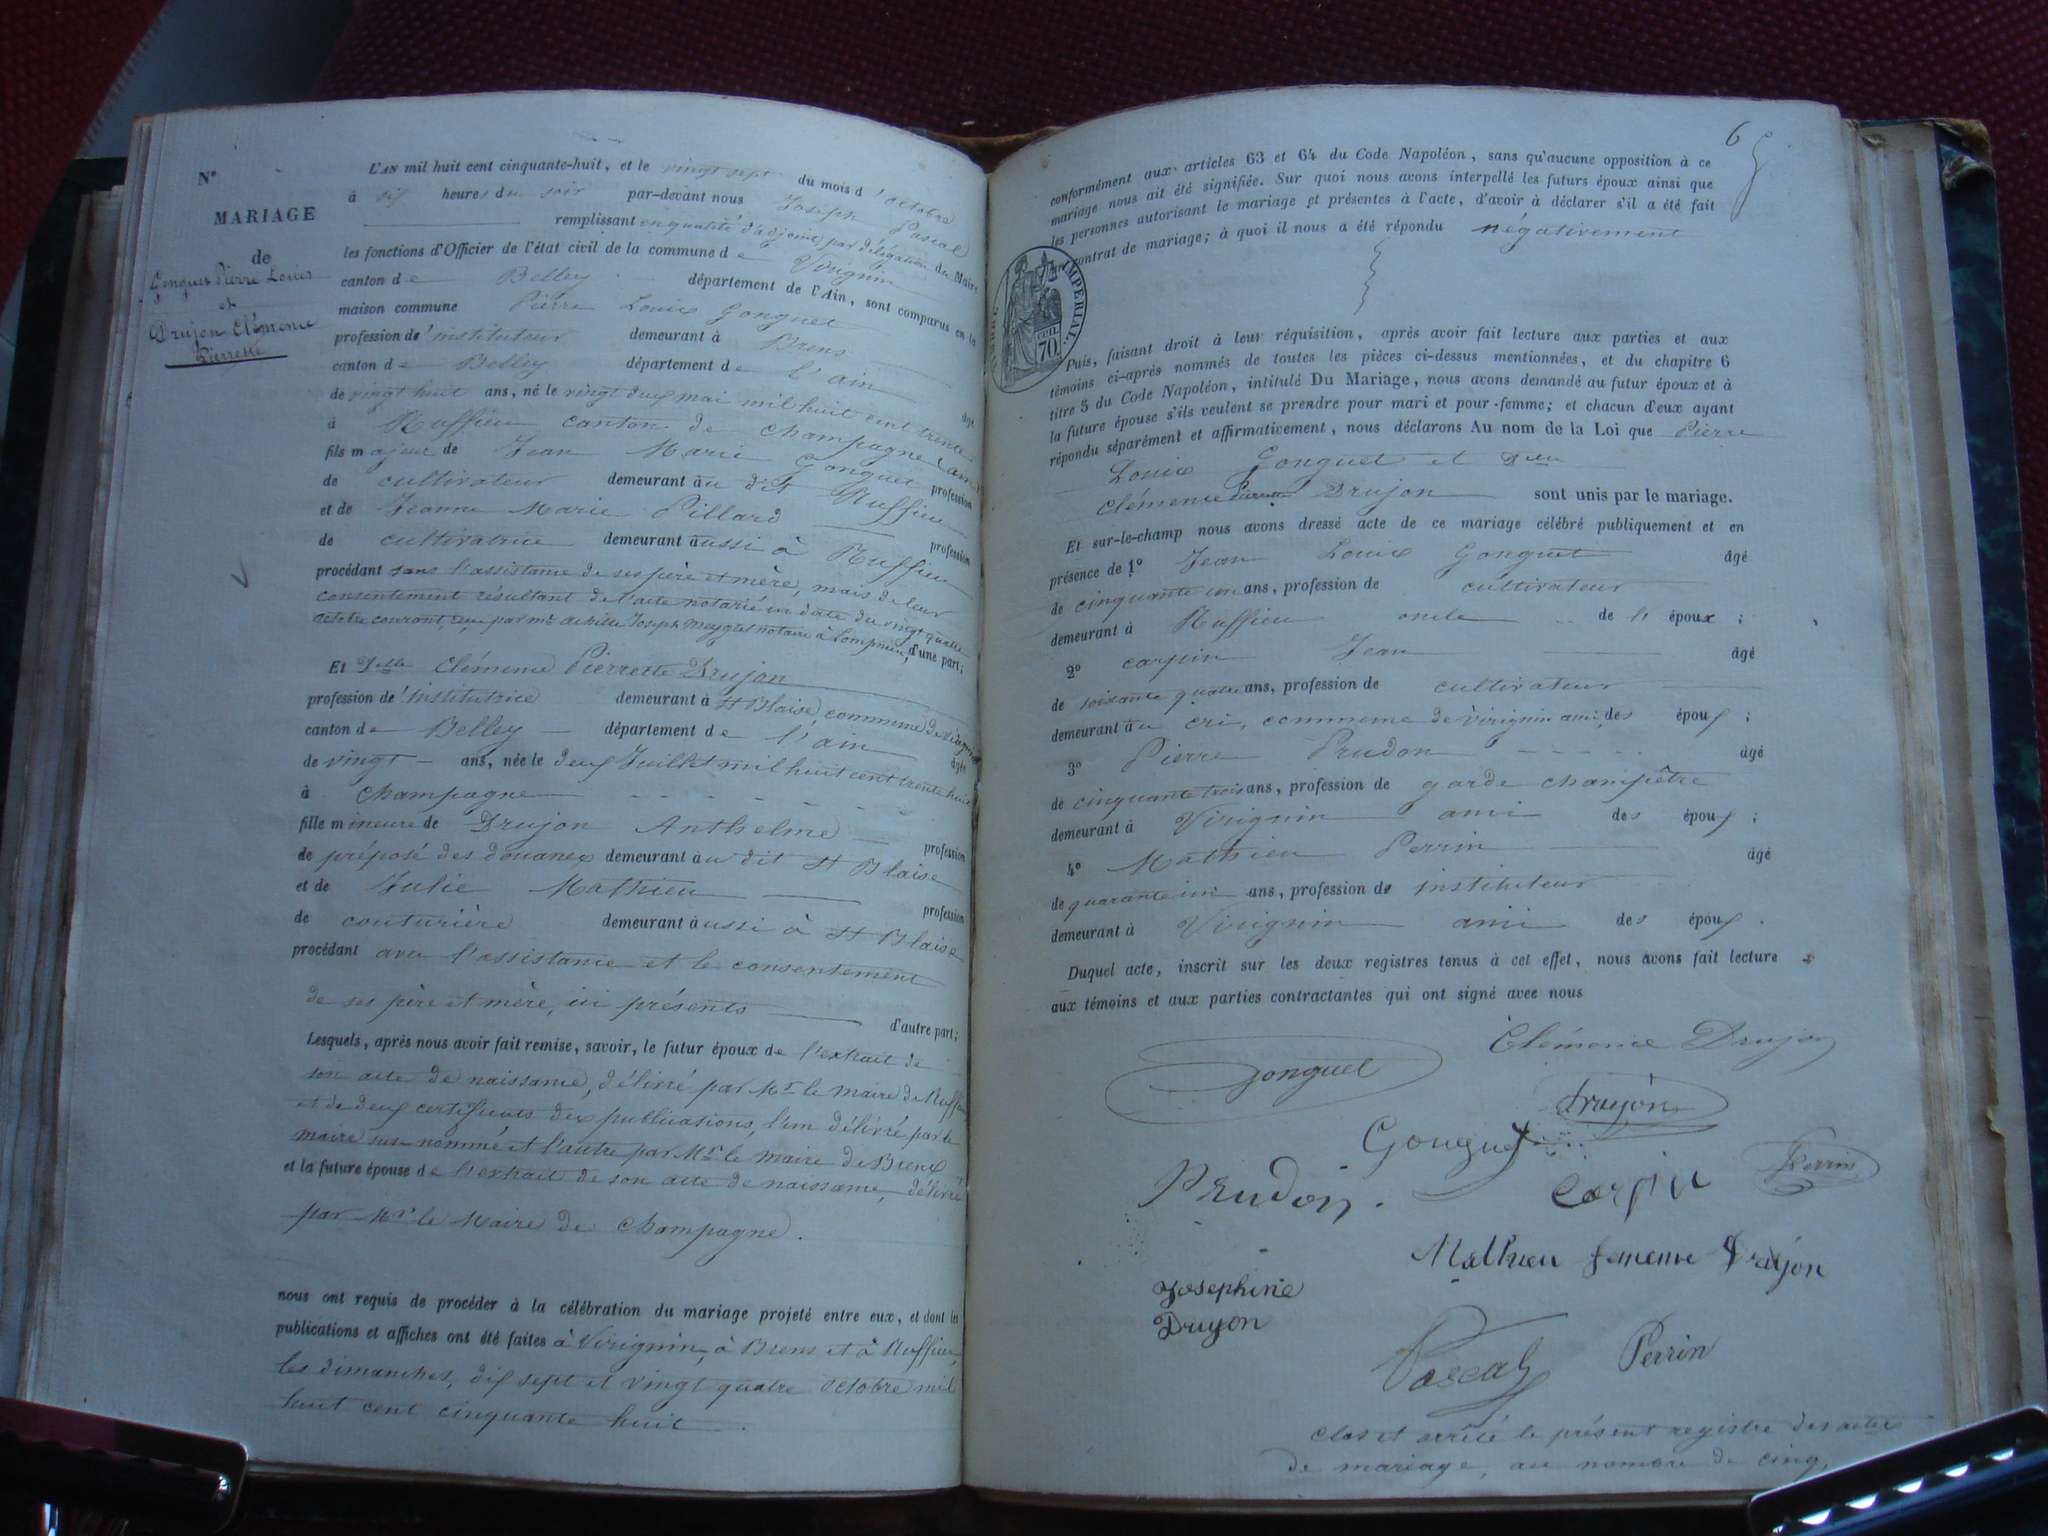 N°
MARIAGE
de
Gonguet Pierre Louis
et
Drujon Clémence
Pierrette
L'AN mil huit cent cinquante-huit, et le vingt sept du mois d'octobre
à six heures du soir par-devant nous Joseph Pascal
remplissant en qualité d'adjoint, par délégation du Maire
les fonctions d'Officier de l'état civil de la commune de Virignin
canton de Belley département de l'Ain, sont comparus en la
maison commune Pierre Louis Gonguet
profession d'instituteur demeurant à Brens
canton de Belley département de l'ain âgé
de vingt huit ans, né le vingt deux mai mil huit cent trente
à Ruffieu canton de Champagne (ain)
fils majeur de Jean Marie Gonguet profession
de cultivateur demeurant au dit Ruffieu
et de Jeanne Marie Pillard profession
de cultivatrice demeurant aussi à Ruffieu
procédant sans l'assistance de ses père et mère, mais de leur
consentement résultant de l'acte notarié en date du vingt quatre
octobre courant, reçu par me Joseph notaire à d'une part;
Et Delle Clémence Pierrette Drujon
profession d'institutrice demeurant à St Blaise, commune de Virignin
canton de Belley département de l'ain âgée
de vingt ans, née le deux Juillet mil huit cent trente huit
à Champagne
fille mineure de Drujon Anthelme profession
de préposé des douanes demeurant au dit St Blaise
et de Julie Mathieu profession
de couturière demeurant aussi à St Blaise
procédant avec l'assistance et le consentement
de ses père et mère, ici présents d'autre part;
Lesquels, après nous avoir fait remise, savoir, le futur époux de l'extrait de
son acte de naissance, délivré par Mr le maire de Ruffieu
et de deux certificats des publications, l'un délivré par le
maire sus-nommé et l'autre par Mr le maire de Brens
et la future épouse de l'extrait de son acte de naissance, délivré
par Mr le Maire de Champagne.
nous ont requis de procéder à la célébration du mariage projeté entre eux, et dont les
publications et affiches ont été faites à Virignin, à Brens et à Ruffieu,
les dimanches, dix sept et vingt quatre octobre mil
huit cent cinquante huit.
6
conformément aux articles 63 et 64 du Code Napoléon, sans qu'aucune opposition à ce
mariage nous ait été signifiée. Sur quoi nous avons interpellé les futurs époux ainsi que
les personnes autorisant le mariage et présentes à l'acte, d'avoir à déclarer s'il a été fait
un contrat de mariage; à quoi il nous a été répondu négativement
TIMBRE IMPERIAL.
70 cen.
Puis, faisant droit à leur réquisition, après avoir fait lecture aux parties et aux
témoins ci-après nommés de toutes les pièces ci-dessus mentionnées, et du chapitre 6
titre 5 du Code Napoléon, intitulé Du Mariage, nous avons demandé au futur époux et à
la future épouse s'ils veulent se prendre pour mari et pour-femme; et chacun d'eux ayant
répondu séparément et affirmativement, nous déclarons Au nom de la Loi que Pierre
Louis Gonguet et Delle
Clémence Pierrette Drujon sont unis par le mariage.
Et sur-le-champ nous avons dressé acte de ce mariage célébré publiquement et en
présence de 1° Jean Louis Gonguet âgé
de cinquante un ans, profession de cultivateur
demeurant à Ruffieu oncle de l'époux;
2° Carpin Jean âgé
de soixante quatre ans, profession de cultivateur
demeurant au cri, commune de Virignin ami des époux;
3° Pierre Prudon âgé
de cinquante trois ans, profession de garde champêtre
demeurant à Virignin ami des époux;
4° Mathieu Perrin âgé
de quarante un ans, profession de instituteur
demeurant à Virignin ami des époux.
Duquel acte, inscrit sur les deux registres tenus à cet effet, nous avons fait lecture
aux témoins et aux parties contractantes qui ont signé avec nous
Clémence Drujon
Gonguet
Drujon
Gonguet
Perrin
Prudon.
Carpin
Mathieu femme Drujon
Josephine
Drujon
Pascal
Perrin
Clos et arrêté le présent registre des actes
de mariage, au nombre de cinq,